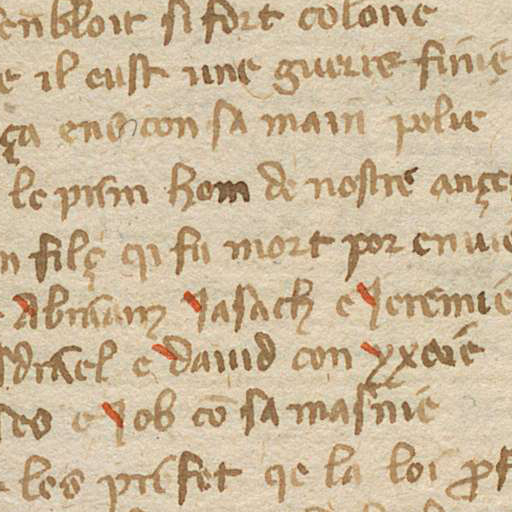 senbloit si fort colorie
e il eust une guerre finie
ça ens con sa main polie
le prim hom de nostre ançe
n filç qi fu mort por envie
Abraam Jasach e Jeremie
sdrael e david con yxeie
ses e Job cō sa masnie
les prefet qe la loi prof